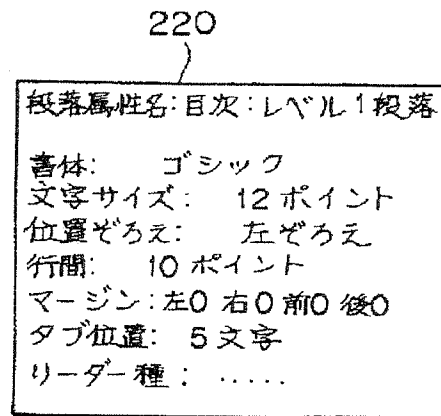 220
段落属性名:目次:レベル1段落
書体: ゴシック
文字サイズ: 12ポイント
位置ぞろえ: 左ぞろえ
行間: 10ポイント
マージン:左0 右0 前0 後0
タブ位置: 5文字
リーダー種: .....